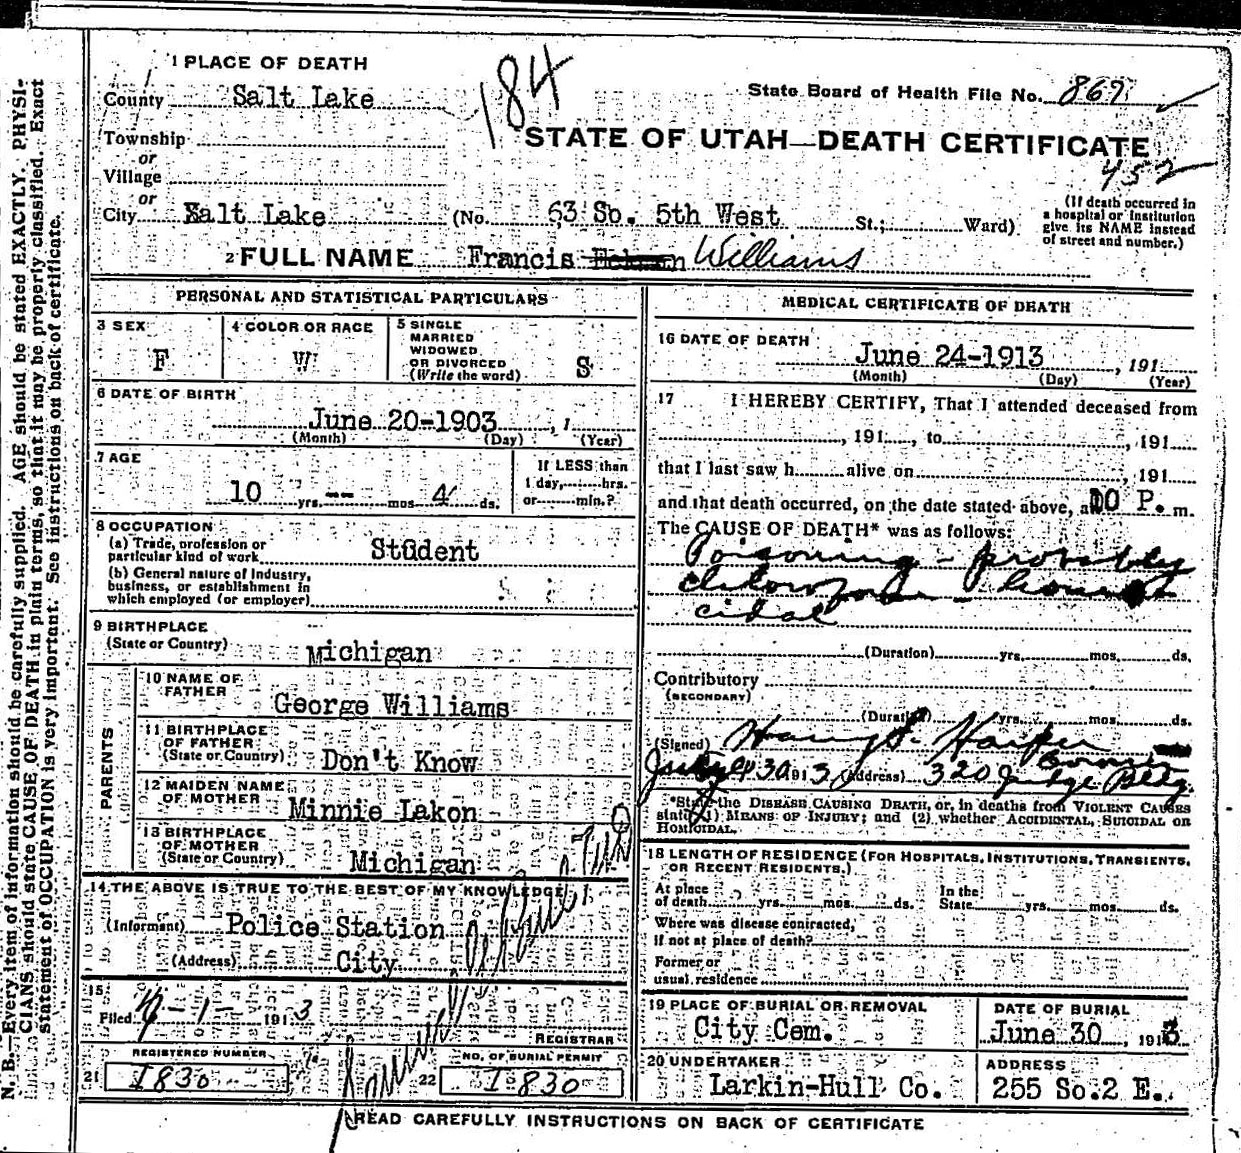 N. B.—Every item of information should be carefully supplied. AGE should be stated EXACTLY. PHYSI-
CIANS should state CAUSE OF DEATH in plain terms, so that it may be properly classified. Exact
statement of OCCUPATION is very important. See instructions on back of certificate.
1 PLACE OF DEATH
County Salt Lake
184
State Board of Health File No. 869
Township
STATE OF UTAH—DEATH CERTIFICATE
or
Village
452
or
City Salt Lake (No. 63 So. 5th West St.; Ward)
(If death occurred in
a hospital or institution
give its NAME instead
of street and number.)
2 FULL NAME Francis Williams
PERSONAL AND STATISTICAL PARTICULARS
3 SEX
F
4 COLOR OR RACE
W
5 SINGLE
MARRIED
WIDOWED
OR DIVORCED
(Write the word)
S
6 DATE OF BIRTH
June 20-1903, 1
(Month) (Day) (Year)
7 AGE
10 yrs. -- mos. 4 ds.
If LESS than
1 day, hrs.
or min.?
8 OCCUPATION
(a) Trade, profession or
particular kind of work Student
(b) General nature of industry,
business, or establishment in
which employed (or employer)
9 BIRTHPLACE
(State or Country) Michigan
PARENTS
10 NAME OF
FATHER
George Williams
11 BIRTHPLACE
OF FATHER
(State or Country) Don't Know
12 MAIDEN NAME
OF MOTHER Minnie Lakon
13 BIRTHPLACE
OF MOTHER
(State or Country) Michigan
14 THE ABOVE IS TRUE TO THE BEST OF MY KNOWLEDGE
(Informant) Police Station
(Address) City
15
Filed 7-1- 1913
REGISTRAR
REGISTERED NUMBER
21 1830
NO. OF BURIAL PERMIT
22 1830
MEDICAL CERTIFICATE OF DEATH
16 DATE OF DEATH
June 24-1913, 191
(Month) (Day) (Year)
17 I HEREBY CERTIFY, That I attended deceased from
, 191 , to , 191
that I last saw h alive on , 191
and that death occurred, on the date stated above, at 10 P. m.
The CAUSE OF DEATH* was as follows:
Poisoning - probably
chloroform - homi
cidal
(Duration) yrs. mos. ds.
Contributory
(SECONDARY)
(Duration) yrs. mos. ds.
(Signed) Harry S. Harper
Coroner
30 1913 (Address) 320 Judge Bldg.
*State the DISEASE CAUSING DEATH, or, in deaths from VIOLENT CAUSES
state (1) MEANS OF INJURY; and (2) whether ACCIDENTAL, SUICIDAL OR
HOMICIDAL.
18 LENGTH OF RESIDENCE (FOR HOSPITALS, INSTITUTIONS, TRANSIENTS,
OR RECENT RESIDENTS.)
At place
of death yrs. mos. ds.
In the
State yrs. mos. ds.
Where was disease contracted,
if not at place of death?
Former or
usual residence
19 PLACE OF BURIAL OR REMOVAL
City Cem.
DATE OF BURIAL
June 30, 1913
20 UNDERTAKER
Larkin-Hull Co.
ADDRESS
255 So. 2 E.
READ CAREFULLY INSTRUCTIONS ON BACK OF CERTIFICATE